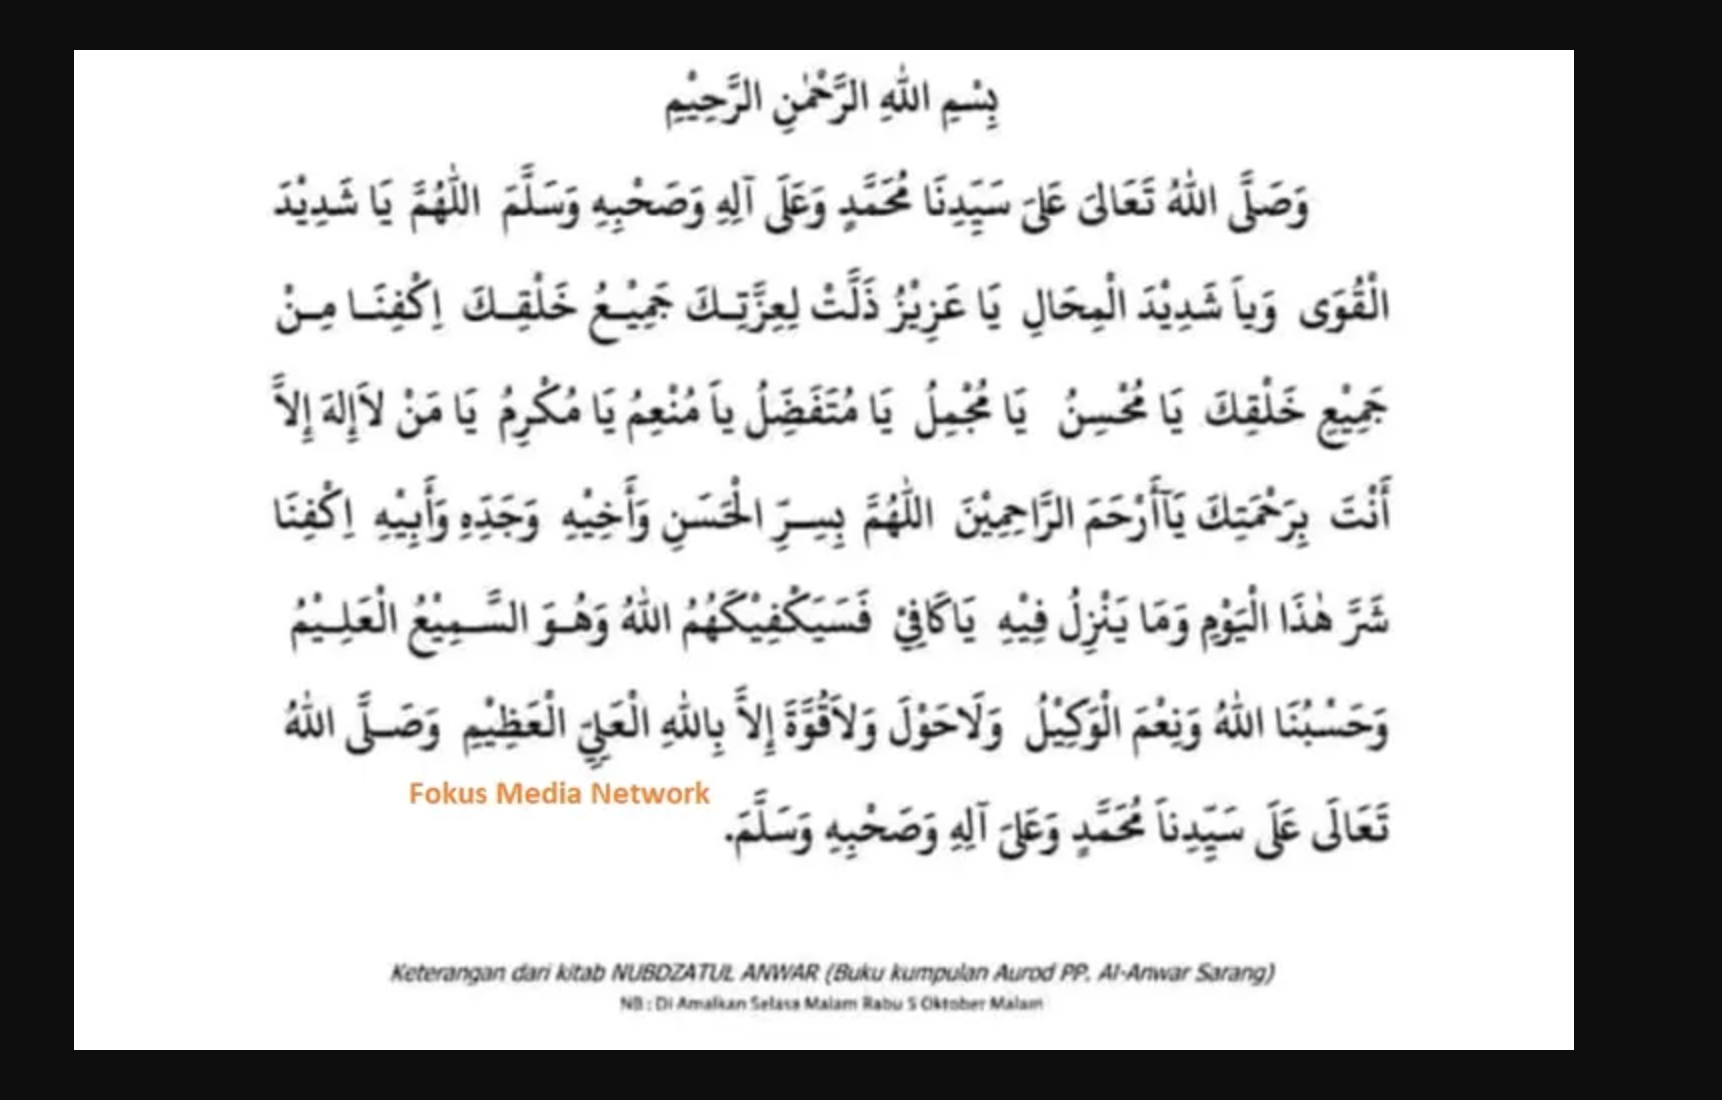 بِسْمِ اللهِ الرَّحْمٰنِ الرَّحِيْمِ
وَصَلَّى اللهُ تَعَالىَ عَلىَ سَيِّدِنَا مُحَمَّدٍ وَعَلَى آلِهِ وَصَحْبِهِ وَسَلَّمَ اللّٰهُمَّ يَا شَدِيْدَ
الْقُوَى وَياَ شَدِيْدَ الْمِحَالِ يَا عَزِيْزُ ذَلَّتْ لِعِزَّتِـكَ جَمِيْـعُ خَلْقِـكَ اِكْفِنَـا مِـنْ
جَمِيْعِ خَلْقِكَ يَا مُحْسِنُ يَا مُجْمِلُ يَا مُتَفَضِّلُ ياَ مُنْعِمُ يَا مُكْرِمُ يَا مَنْ لاَإِلهَ إِلاَّ
أَنْتَ بِرَحْمَتِكَ يَآأَرْحَمَ الرَّاحِمِيْنَ اللّٰهُمَّ بِسِـرِّ الْحَسَنِ وَأَخِيْهِ وَجَدِّهِ وَأَبِيْهِ اِكْفِنَا
شَرَّ هٰذَا الْيَوْمِ وَمَا يَنْزِلُ فِيْهِ يَاكَافِيْ فَسَيَكْفِيْكَهُمُ اللهُ وَهُـوَ السَّـمِيْعُ الْعَلِـيْمُ
وَحَسْبُنَا اللهُ وَنِعْمَ الْوَكِيْلُ وَلَاحَوْلَ وَلاَقُوَّةَ إِلاَّ بِاللهِ الْعَلِيِّ الْعَظِيْمِ وَصَـلَّى اللهُ
Fokus Media Network
تَعَالَى عَلَى سَيِّدِناَ مُحَمَّدٍ وَعَلىَ آلِهِ وَصَحْبِهِ وَسَلَّمَ.
Keterangan dari kitab NUBDZATUL ANWAR (Buku kumpulan Aurod PP. Al-Anwar Sarang)
NB : Di Amalkan Selasa Malam Rabu 5 Oktober Malam